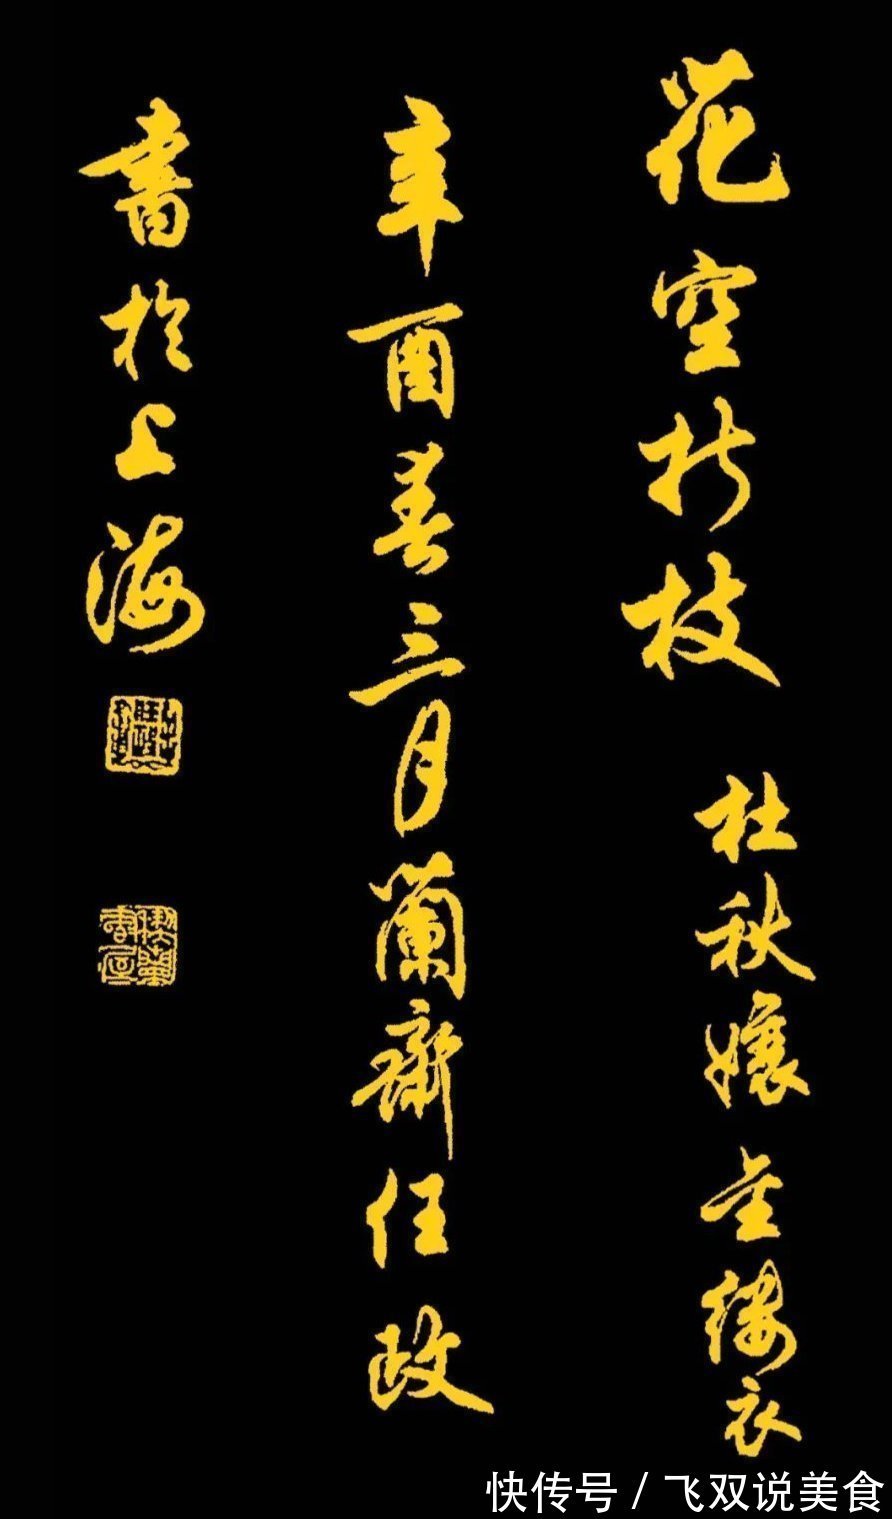 花空折枝 杜秋孃金縷衣
辛酉春三月蘭齋任政
書於上海
快传号 / 飞双说美食